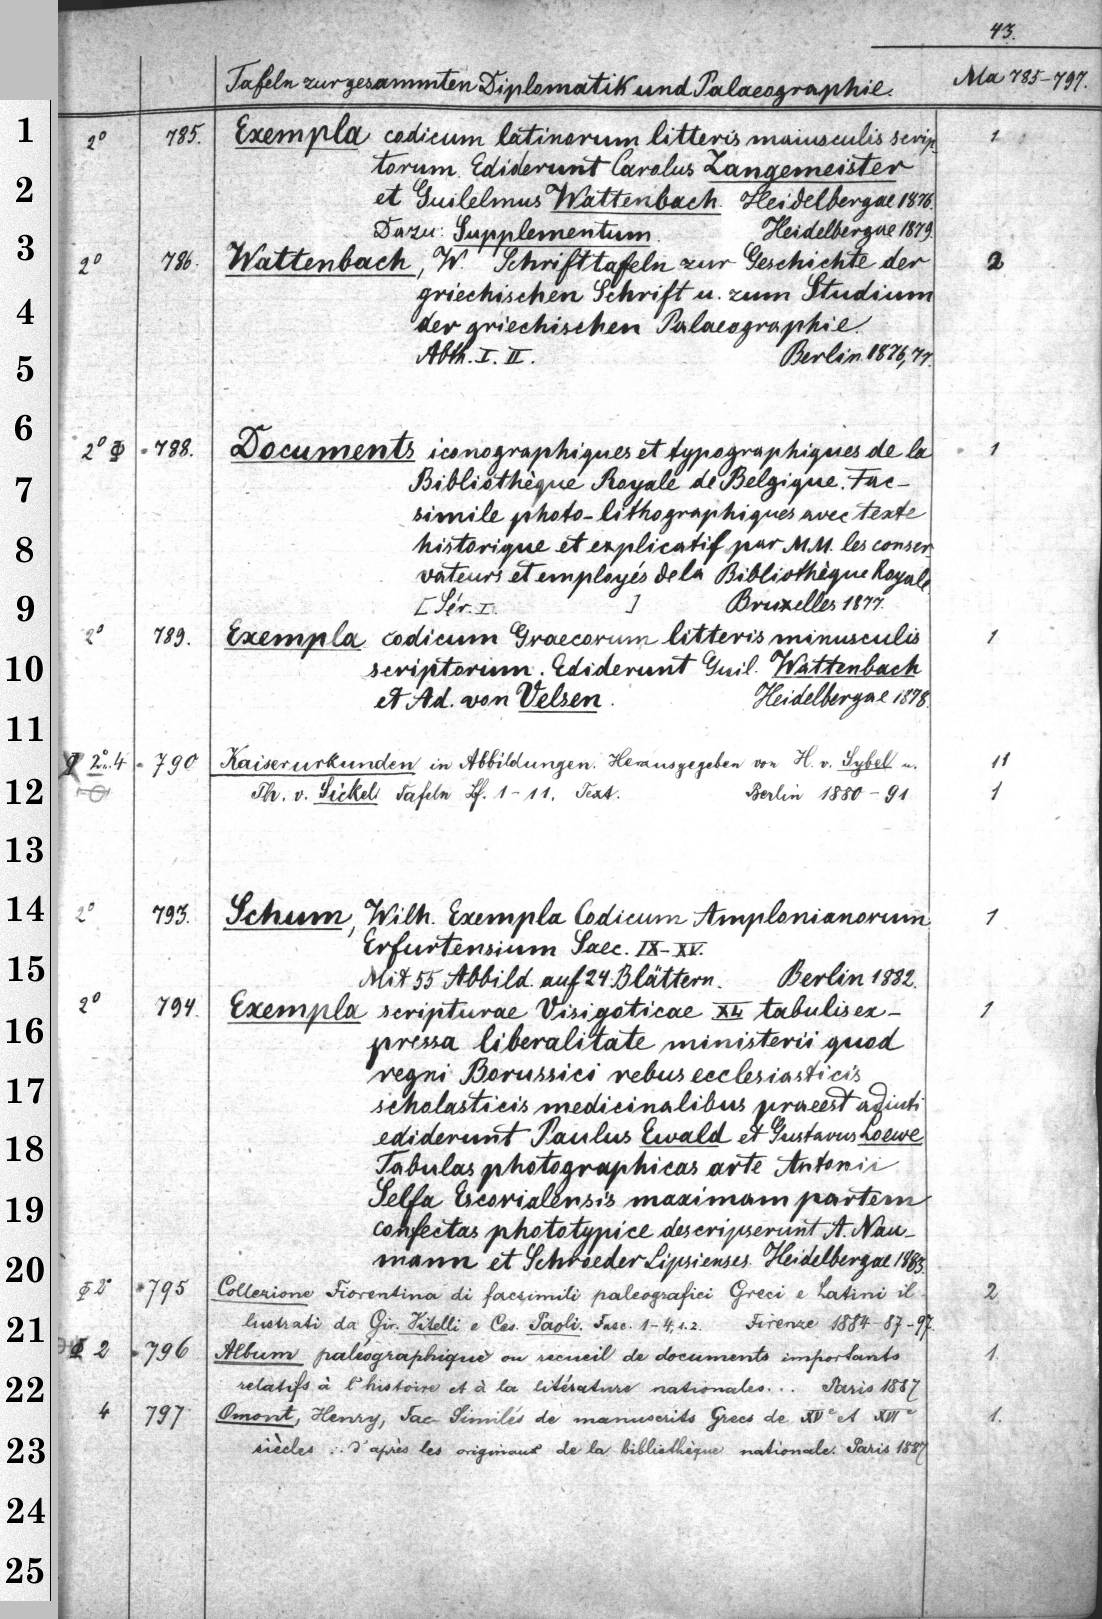 43.
Tafeln zur gesammten Diplomatik und Palaeographie. Ma 785-797.
1 2° 785. Exempla codicum latinorum litteris maiusculis scrip- 1
torum. Ediderunt Carolus Zangemeister
2 et Guilelmus Wattenbach. Heidelbergae 1876.
Dazu: Supplementum. Heidelbergae 1879.
3 2° 786. Wattenbach, W. Schrifttafeln zur Geschichte der 2
griechischen Schrift u. zum Studium
4 der griechischen Palaeographie.
5 Abth. I. II. Berlin 1876, 77.
6 2° Φ 788. Documents iconographiques et typographiques de la 1
7 Bibliothèque Royale de Belgique. Fac-
simile photo-lithographiques avec texte
8 historique et explicatif par MM. les conser-
vateurs et employés de la Bibliothèque Royale.
9 [Sér. I. ] Bruxelles 1877.
2° 789. Exempla codicum Graecorum litteris minusculis 1
10 scriptorum. Ediderunt Guil. Wattenbach
et Ad. von Velsen. Heidelbergae 1878.
11
2° 4 790 Kaiserurkunden in Abbildungen. Herausgegeben von H. v. Sybel u. 11
12 Th. v. Sickel Tafeln Lf. 1-11. Text. Berlin 1880-91 1
13
14 2° 793. Schum, Wilh. Exempla Codicum Amplonianorum 1
Erfurtensium Saec. IX-XV.
15 Mit 55 Abbild. auf 24 Blättern. Berlin 1882.
2° 794. Exempla scripturae Visigoticae XL tabulis ex- 1
16 pressa liberalitate ministerii quod
regni Borussici rebus ecclesiasticis
17 scholasticis medicinalibus praeest adiuti
18 ediderunt Paulus Ewald et Gustavus Loewe
Tabulas photographicas arte Antonii
19 Selfa Escorialensis maximam partem
confectas phototypice descripserunt A. Nau-
20 mann et Schroeder Lipsienses. Heidelbergae 1883.
Φ 2° 795 Collezione Fiorentina di facsimili paleografici Greci e Latini il- 2
21 lustrati da Gir. Vitelli e Ces. Paoli. Fasc. 1-4, 1.2. Firenze 1884-87-97.
Φ 2 796 Album paléographique ou recueil de documents importants 1.
22 relatifs à l'histoire et à la litérature nationales... Paris 1887
4 797 Omont, Henry, Fac-Similés de manuscrits Grecs de XVe et XVIe 1.
23 siècles .. d'après les originaux de la bibliothèque nationale. Paris 1887
24
25